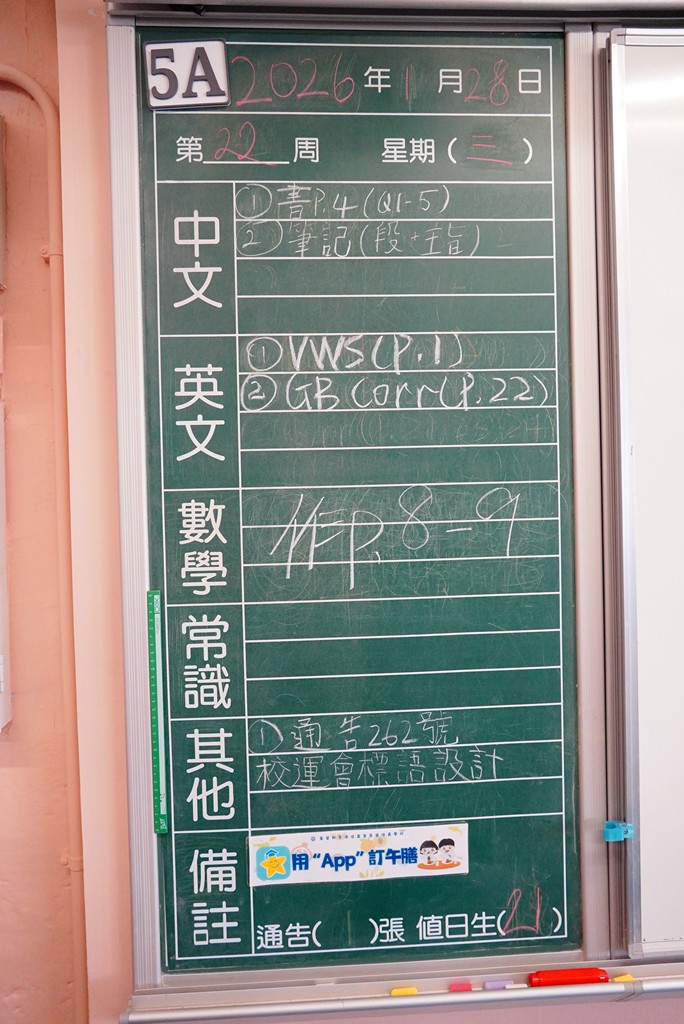 5A 2026年1月28日
第22周 星期(三)
中文
①書P.4(Q1-5)
②筆記(段+主旨)
英文
①VWS(P.1)
②GB Corr(P.22)
數學
P.8-9
常識
其他
①通告262號
校運會標語設計
備註
用“App”訂午膳
通告( )張 值日生(21)